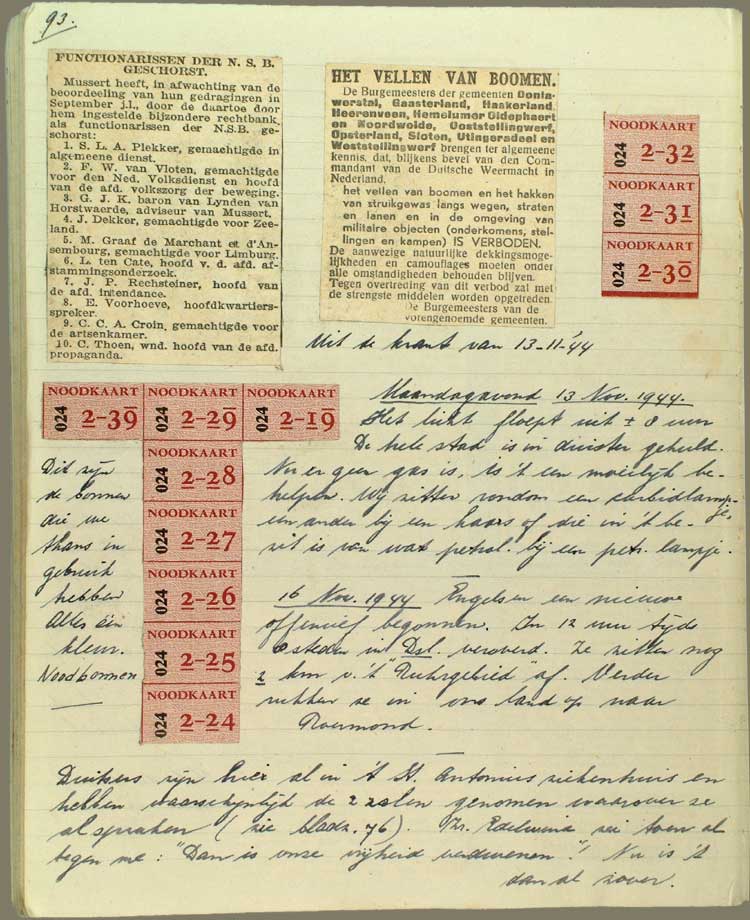 93.
FUNCTIONARISSEN DER N. S. B.
GESCHORST.
Mussert heeft, in afwachting van de
beoordeeling van hun gedragingen in
September j.l., door de daartoe door
hem ingestelde bijzondere rechtbank,
als functionarissen der N.S.B. ge-
schorst:
1. S. L. A. Plekker, gemachtigde in
algemeene dienst.
2. F. W. van Vloten, gemachtigde
voor den Ned. Volksdienst en hoofd
van de afd. volkszorg der beweging.
3. G. J. K. baron van Lynden van
Horstwaerde, adviseur van Mussert.
4. J. Dekker, gemachtigde voor Zee-
land.
5. M. Graaf de Marchant et d'An-
sembourg, gemachtigde voor Limburg.
6. L. ten Cate, hoofd v. d. afd. af-
stammingsonderzoek.
7. J. P. Rechsteiner, hoofd van
de afd. intendance.
8. E. Voorhoeve, hoofdkwartiers-
spreker.
9. C. C. A. Croin, gemachtigde voor
de artsenkamer.
10. C. Thoen, wnd. hoofd van de afd.
propaganda.
HET VELLEN VAN BOOMEN.
De Burgemeesters der gemeenten Donia-
werstal, Gaasterland, Haskerland,
Heerenveen, Hemelumer Oldephaert
en Noordwolde, Ooststellingwerf,
Opsterland, Sloten, Utingersdeel en
Weststellingwerf brengen ter algemeene
kennis, dat, blijkens bevel van den Com-
mandant van de Duitsche Weermacht in
Nederland.
het vellen van boomen en het hakken
van struikgewas langs wegen, straten
en lanen en in de omgeving van
militaire objecten (onderkomens, stel-
lingen en kampen) IS VERBODEN.
De aanwezige natuurlijke dekkingsmoge-
lijkheden en camouflages moeten onder
alle omstandigheden behouden blijven.
Tegen overtreding van dit verbod zal met
de strengste middelen worden opgetreden.
De Burgemeesters van de
vorengenoemde gemeenten.
NOODKAART
024 2-32
NOODKAART
024 2-31
NOODKAART
024 2-30
Uit de krant van 13-11-'44
NOODKAART NOODKAART NOODKAART
024 2-39 024 2-29 024 2-19
NOODKAART
024 2-28
NOODKAART
024 2-27
NOODKAART
024 2-26
NOODKAART
024 2-25
NOODKAART
024 2-24
Dit zijn
de bonnen
die we
thans in
gebruik
hebben
Alles één
kleur.
Noodbonnen
Maandagavond 13 Nov. 1944.
Het licht floept uit ± 8 uur
De hele stad is in duister gehuld.
Nu er geen gas is, is 't een moeilijk be-
helpen. Wij zitten rondom een carbidlamp-
je, een ander bij een kaars of die in 't be-
zit is van wat petrol. bij een petr. lampje.
16 Nov. 1944 Engelsen een nieuwe
offensief begonnen. In 12 uur tijds
8 steden in Dsl. veroverd. Ze zitten nog
2 km v. 't "Ruhrgebied" af. Verder
rukken ze in ons land op naar
Roermond.
Duitsers zijn hier al in 't St. Antonius ziekenhuis en
hebben waarschijnlijk de 2 zalen genomen waarover ze
al spraken (zie bladz. 76). Zr. Edelwina zei toen al
tegen me: "Dan is onze vrijheid verdwenen"! Nu is 't
dan al zover.